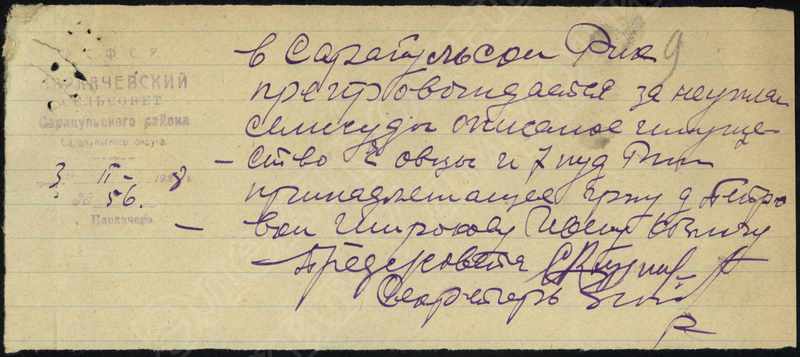 Р С Ф С Р
ПАКЛАЧЕВСКИЙ
СЕЛЬСОВЕТ
Сарапульского района
Сарапульского округа
3 II- 192
№ 56.
9
в Сарапульсои Рик
препровождается за неуплат
семссуды описаное имуще-
ство 2 овцы и 7 пуд Ржи
принадлежащее гржу д Петро
вои Широкову
Предсковета
Секретарь